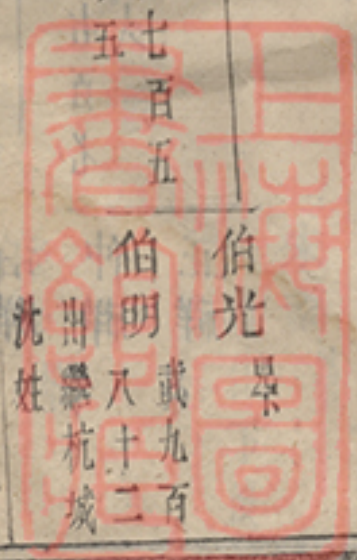 七百五
五
伯光
伯明
武九百
八十二
出繼杭城
沈姓
上海圖
書館藏